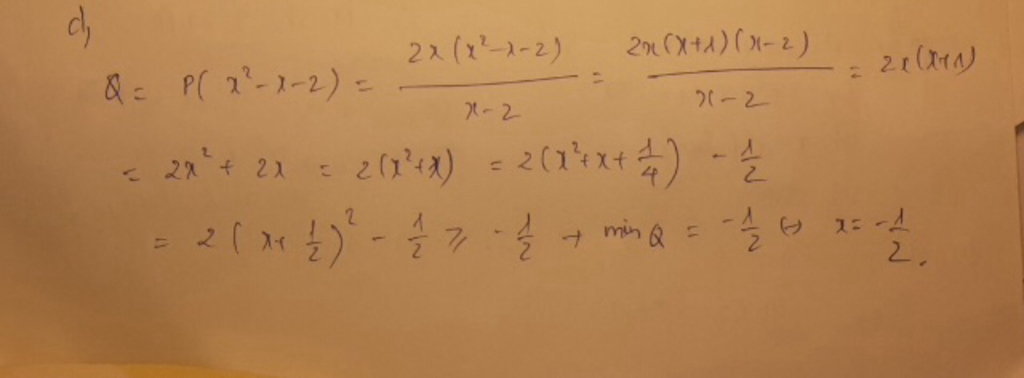 d,
Q = P( x² - x - 2) = 2x(x² - x - 2) / x - 2 = 2x(x+1)(x-2) / x - 2 = 2x(x+1)
= 2x² + 2x = 2(x²+x) = 2(x²+x+ 1/4) - 1/2
= 2(x+ 1/2)² - 1/2 ≥ - 1/2 → min Q = -1/2 ↔ x = -1/2.